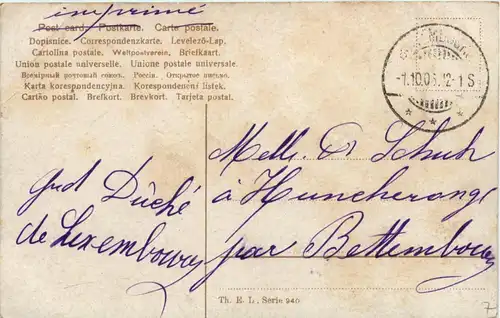 imprimé
Post card. Postkarte. Carte postale.
Dopisnice. Correspondenzkarte. Levelező-Lap.
Cartolina postale. Weltpostverein. Briefkaart.
Union postale universelle. Unione postale universale.
Всемірный почтовый союзъ. Россія. Открытое письмо.
Karta korespondencyjna. Korespondenční lístek.
Cartão postal. Brefkort. Brevkort. Tarjeta postal.
1.10.05. 12-1 S
Melle Schuh
à Huncherange
par Bettembourg
Grd Dûché
de Luxembourg
Th. E. L. Serie 940
7